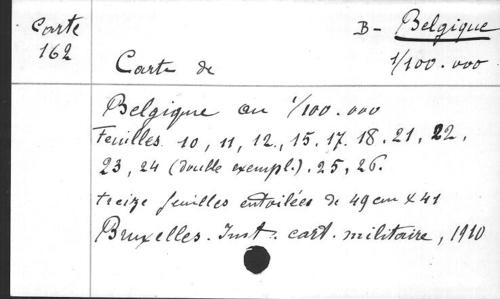 Carte
162
B- Belgique
1/100.000
Carte de
Belgique au 1/100.000
Feuilles 10, 11, 12, 15. 17. 18. 21, 22,
23, 24 (double exempl.). 25, 26.
treize feuilles entoilées de 49 cm x 41
Bruxelles. Inst. cart. militaire, 1910